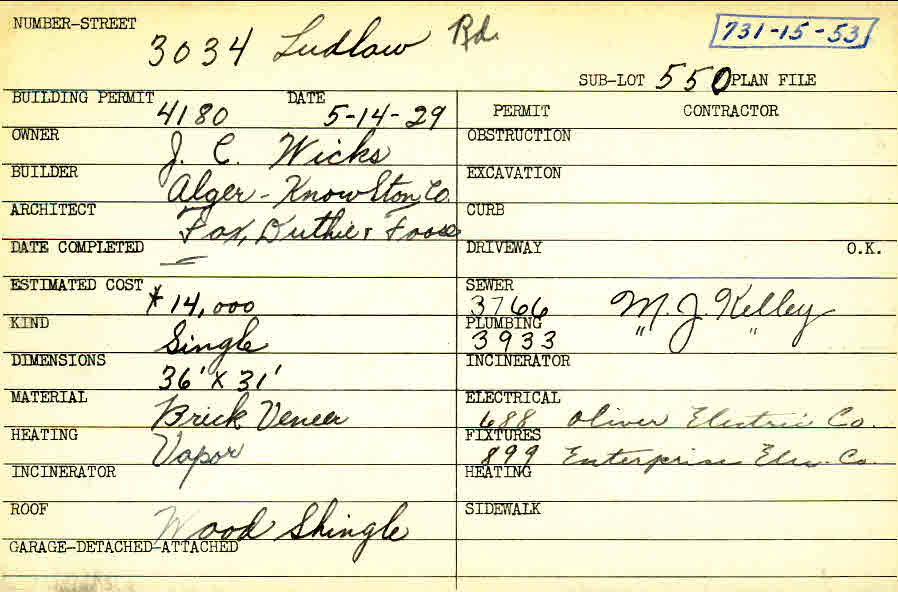 NUMBER-STREET 3034 Ludlow Rd. 731-15-53
SUB-LOT 550 PLAN FILE
BUILDING PERMIT 4180 DATE 5-14-29
OWNER J. C. Wicks
BUILDER Alger-Knowlston Co.
ARCHITECT Fox, Duthie & Foose
DATE COMPLETED
ESTIMATED COST $14,000
KIND Single
DIMENSIONS 36' X 31'
MATERIAL Brick Veneer
HEATING Vapor
INCINERATOR
ROOF Wood Shingle
GARAGE-DETACHED-ATTACHED
PERMIT CONTRACTOR
OBSTRUCTION
EXCAVATION
CURB
DRIVEWAY O.K.
SEWER 3766 M. J. Kelley
PLUMBING 3933 " "
INCINERATOR
ELECTRICAL 688 Oliver Electric Co.
FIXTURES 899 Enterprise Elec. Co.
HEATING
SIDEWALK